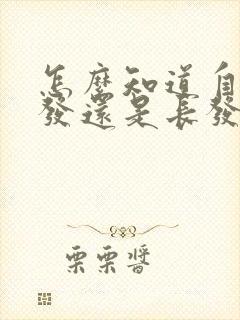 怎麼知道自
發還是長發
栗栗醬